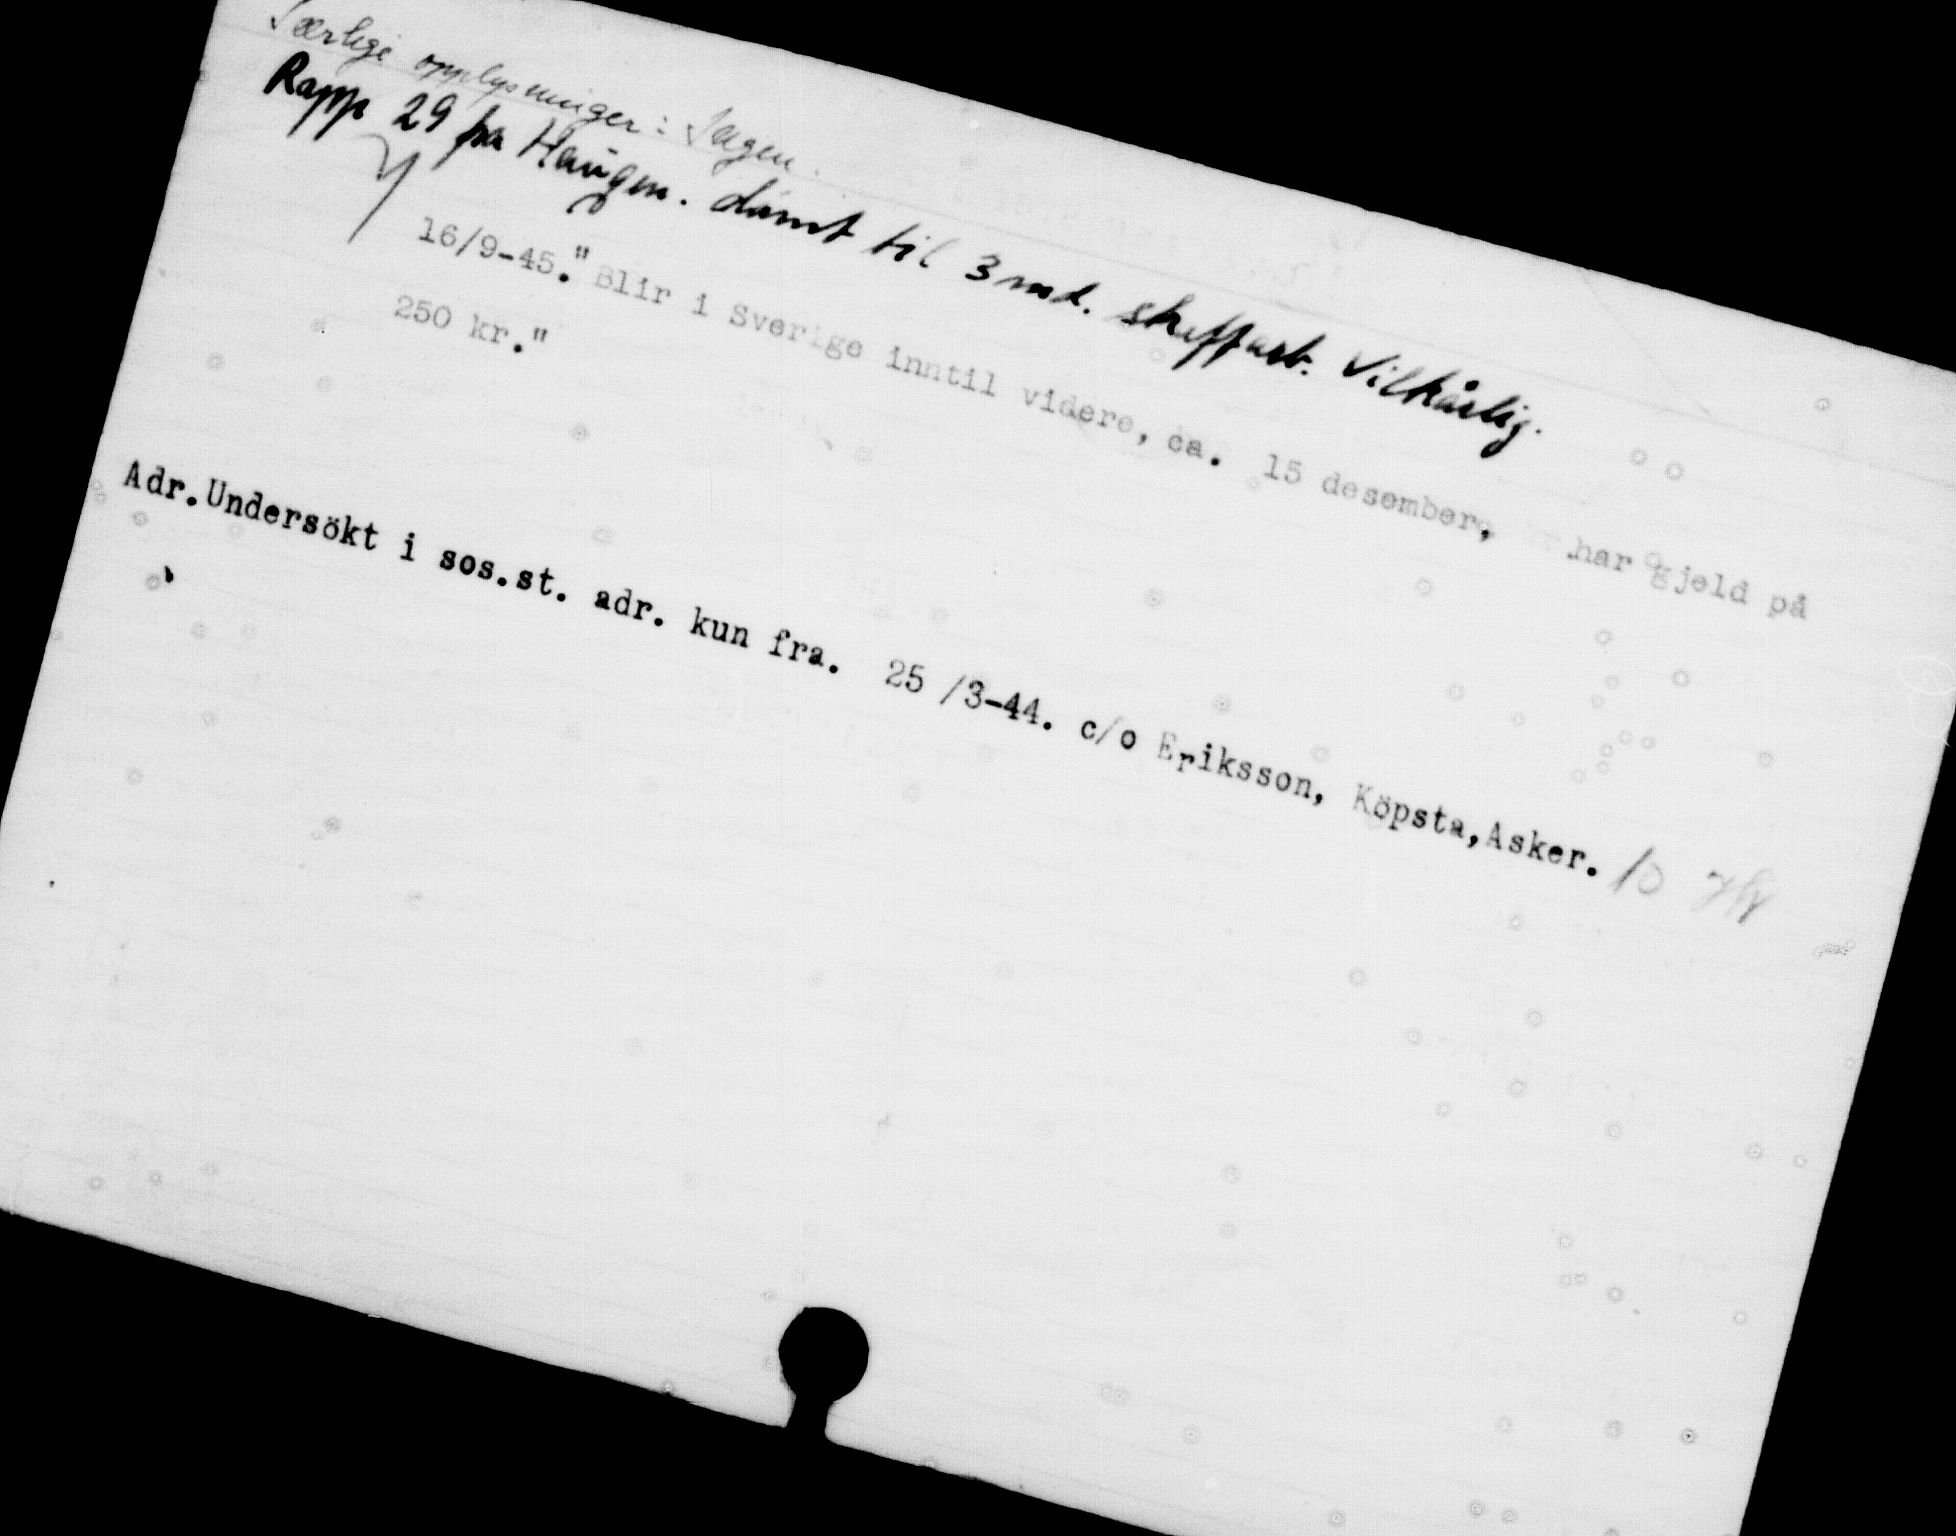 Særlige opplysninger: Ingen.
Rapp 29 fra Haugen. dømt til 3 mnd. straffarb. Vilkårlig.
16/9-45." Blir i Sverige inntil videre, ca. 15 desember, har gjeld på
250 kr."
Adr. Undersökt i sos.st. adr. kun fra. 25 /3-44. c/o Eriksson, Köpsta, Asker. 10